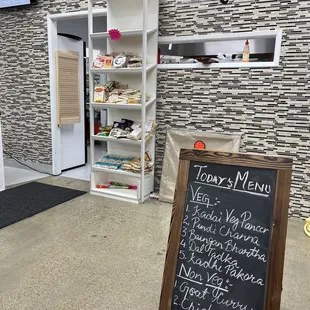 Today's Menu
Veg:
1. Kadai Veg Paneer
2. Pindi Channa
3. Baingan Bhartha
4. Dal Tadka
5. Kadhi Pakora
Non Veg:
1. Goat Curry
2.